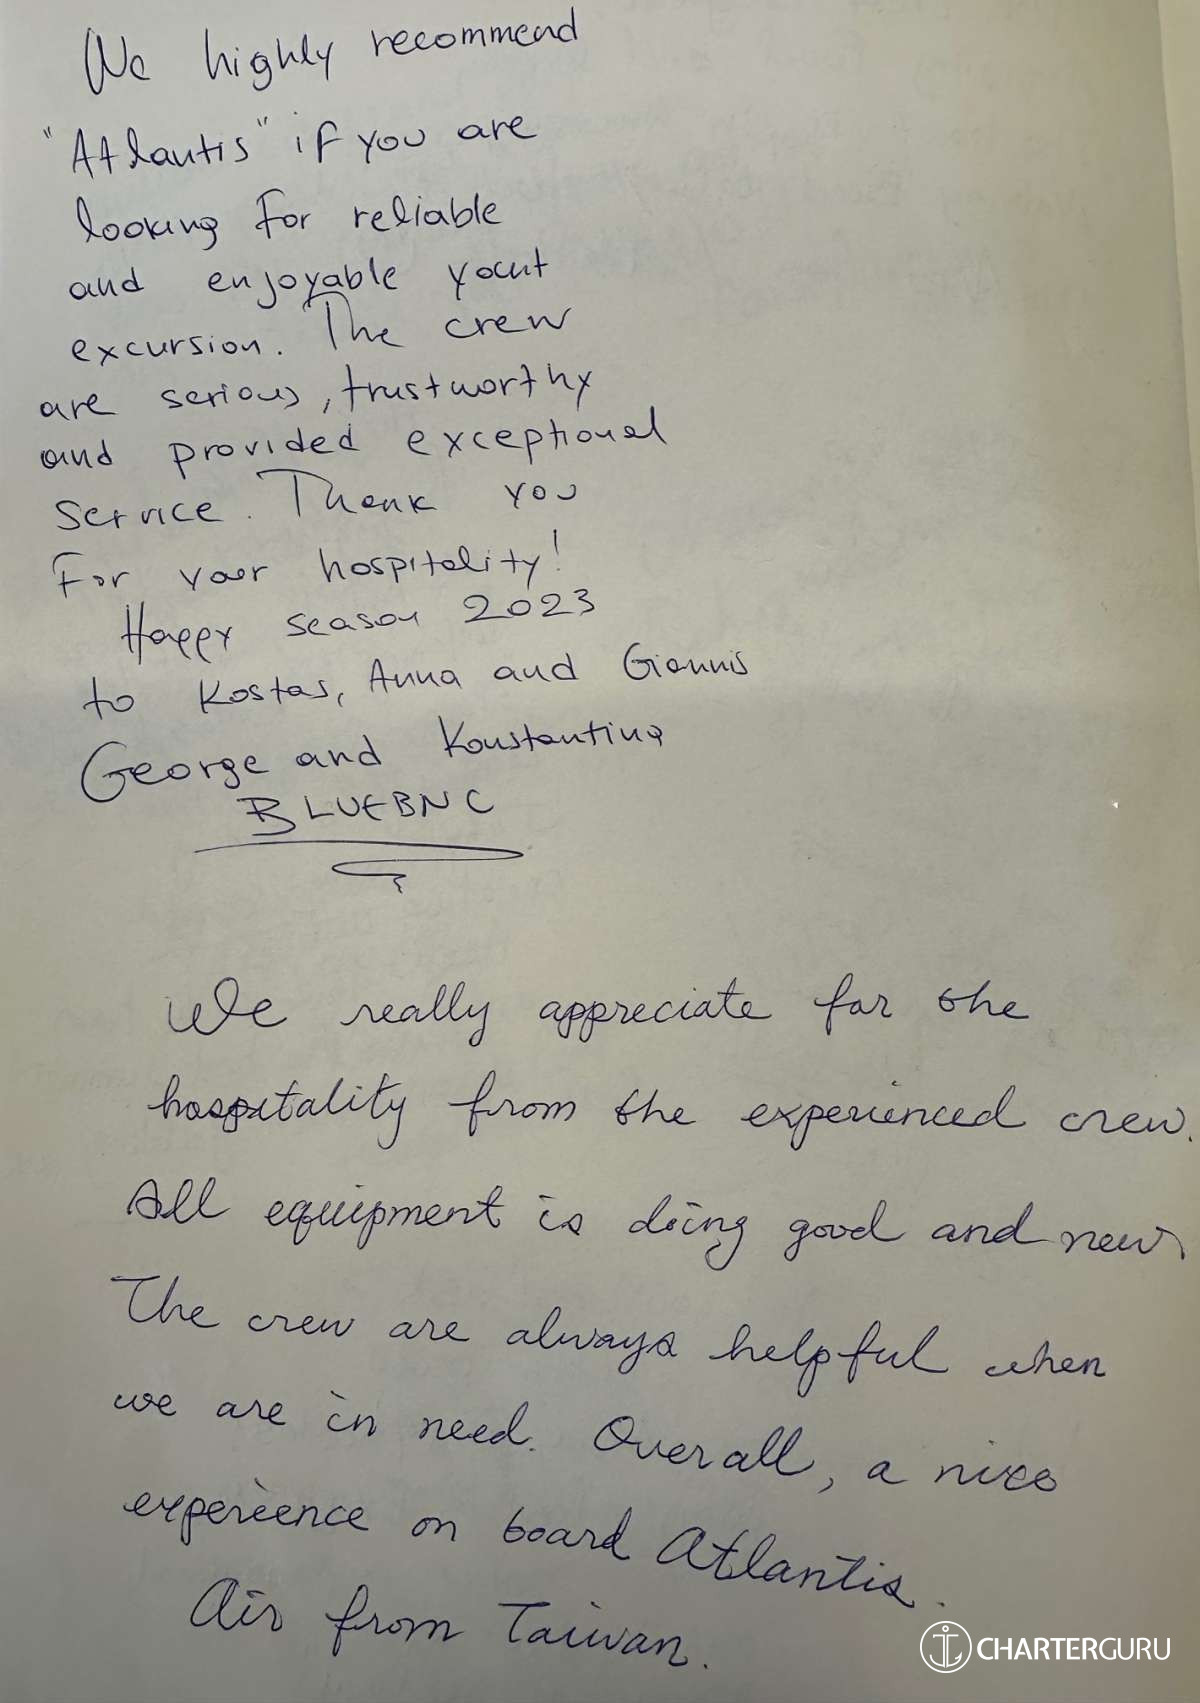 We highly recommend
"Atlantis" if you are
looking for reliable
and enjoyable yacht
excursion. The crew
are serious, trustworthy
and provided exceptional
service. Thank you
For your hospitality!
Happy season 2023
to Kostas, Anna and Giannis
George and Konstantina
BLUEBNC
We really appreciate for the
hospitality from the experienced crew.
All equipment is doing good and new.
The crew are always helpful when
we are in need. Overall, a nice
experience on board Atlantis.
Air from Taiwan.
CHARTERGURU